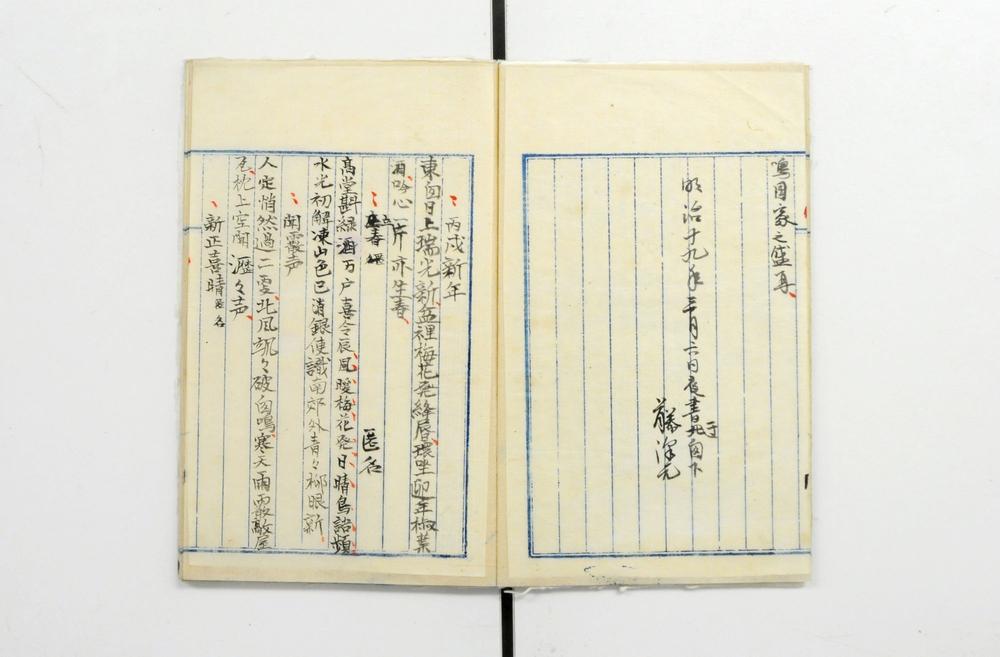 鳴国家之盛耳
明治十九年三月六日夜書于北窓下
藤澤元
丙戌新年
東窓日上瑞光新盆裡梅花発絳唇環坐迎年椒葉
酒吟心一片亦生春
立春 匿名
高堂斟緑酒万户喜令辰風暖梅花発日晴鳥語頻
水光初解凍山色已消銀使識南郊外青々柳眼新
聞霰声 匿名
人定悄然過二更北風颯々破窓鳴寒天雨霰敲屋
瓦枕上空聞瀝々声
新正喜晴 匿名